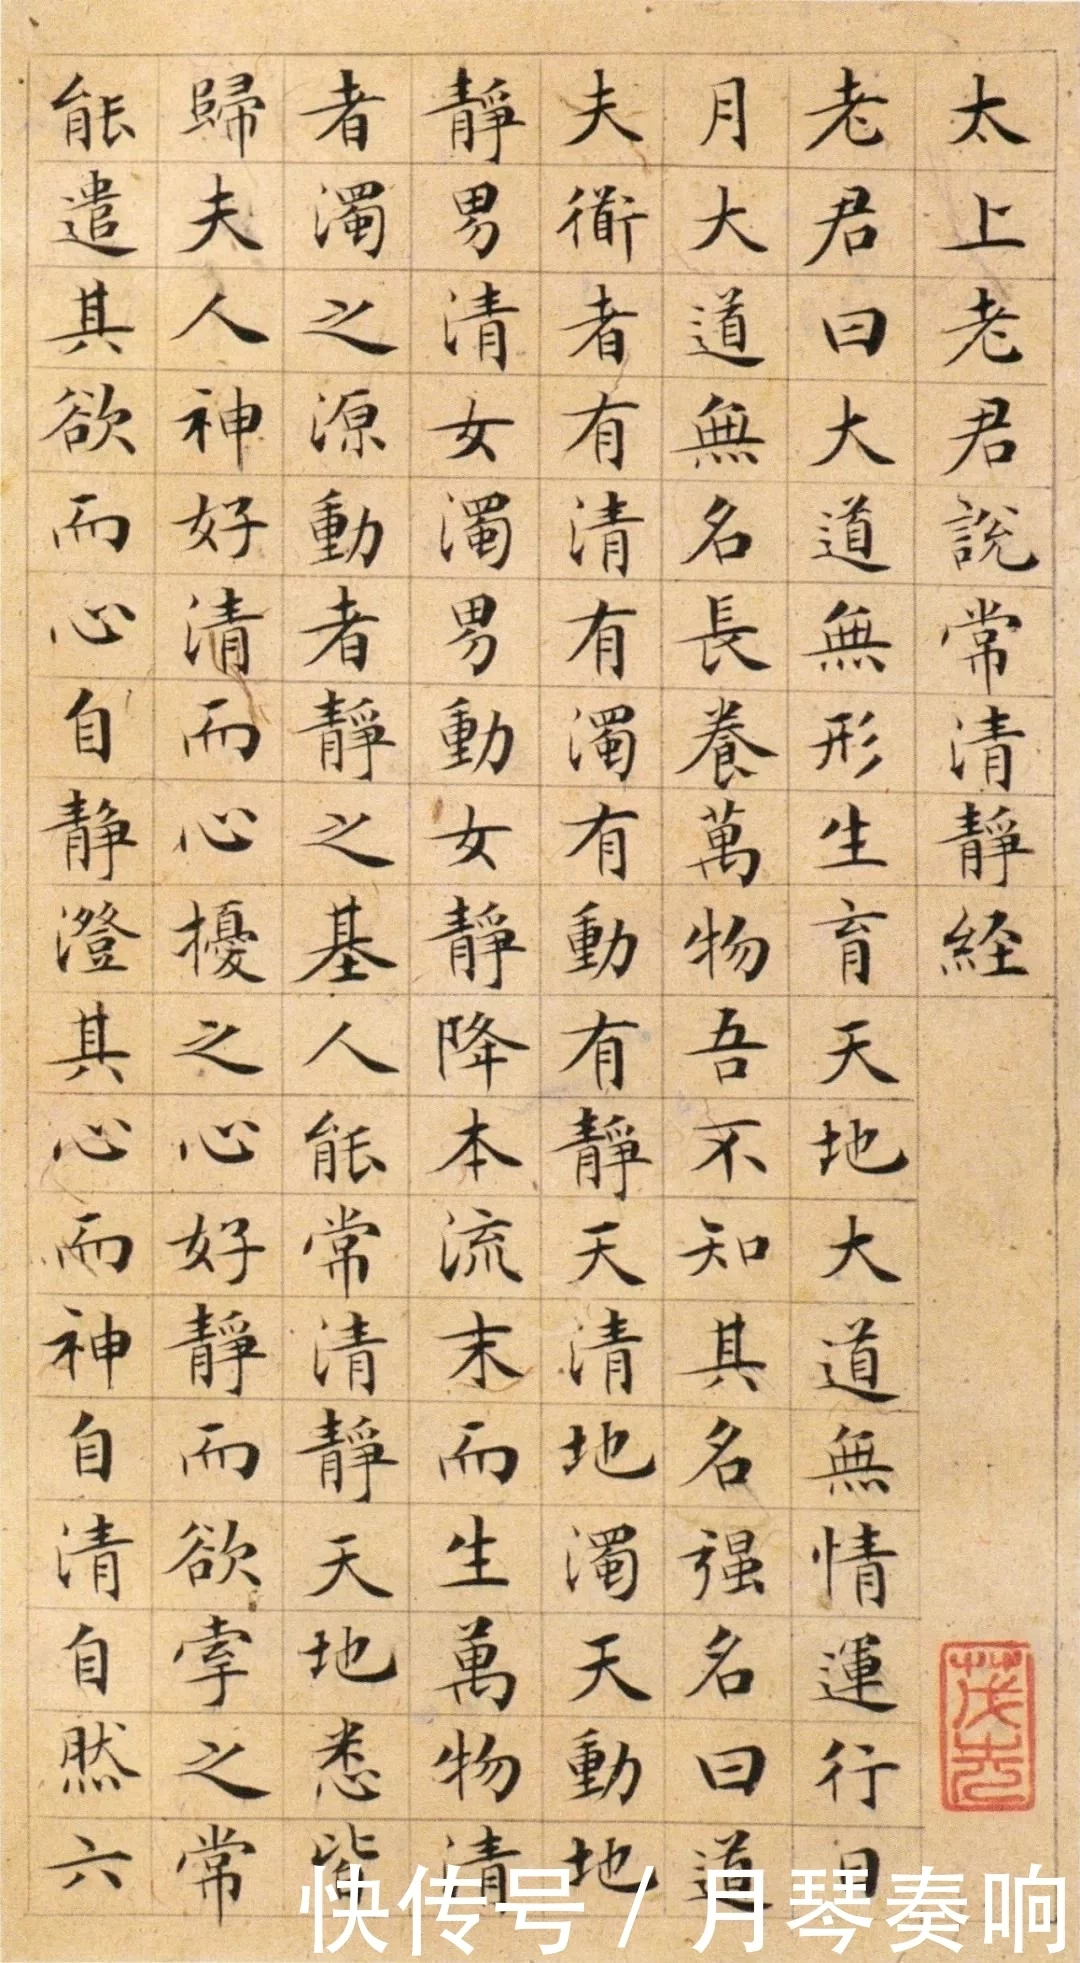 太上老君說常清靜経
老君曰大道無形生育天地大道無情運行日
月大道無名長養萬物吾不知其名强名曰道
夫衜者有清有濁有動有靜天清地濁天動地
靜男清女濁男動女靜降本流末而生萬物清
者濁之源動者靜之基人能常清靜天地悉皆
歸夫人神好清而心擾之心好靜而欲牽之常
能遣其欲而心自靜澄其心而神自清自然六
快传号 / 月琴奏响